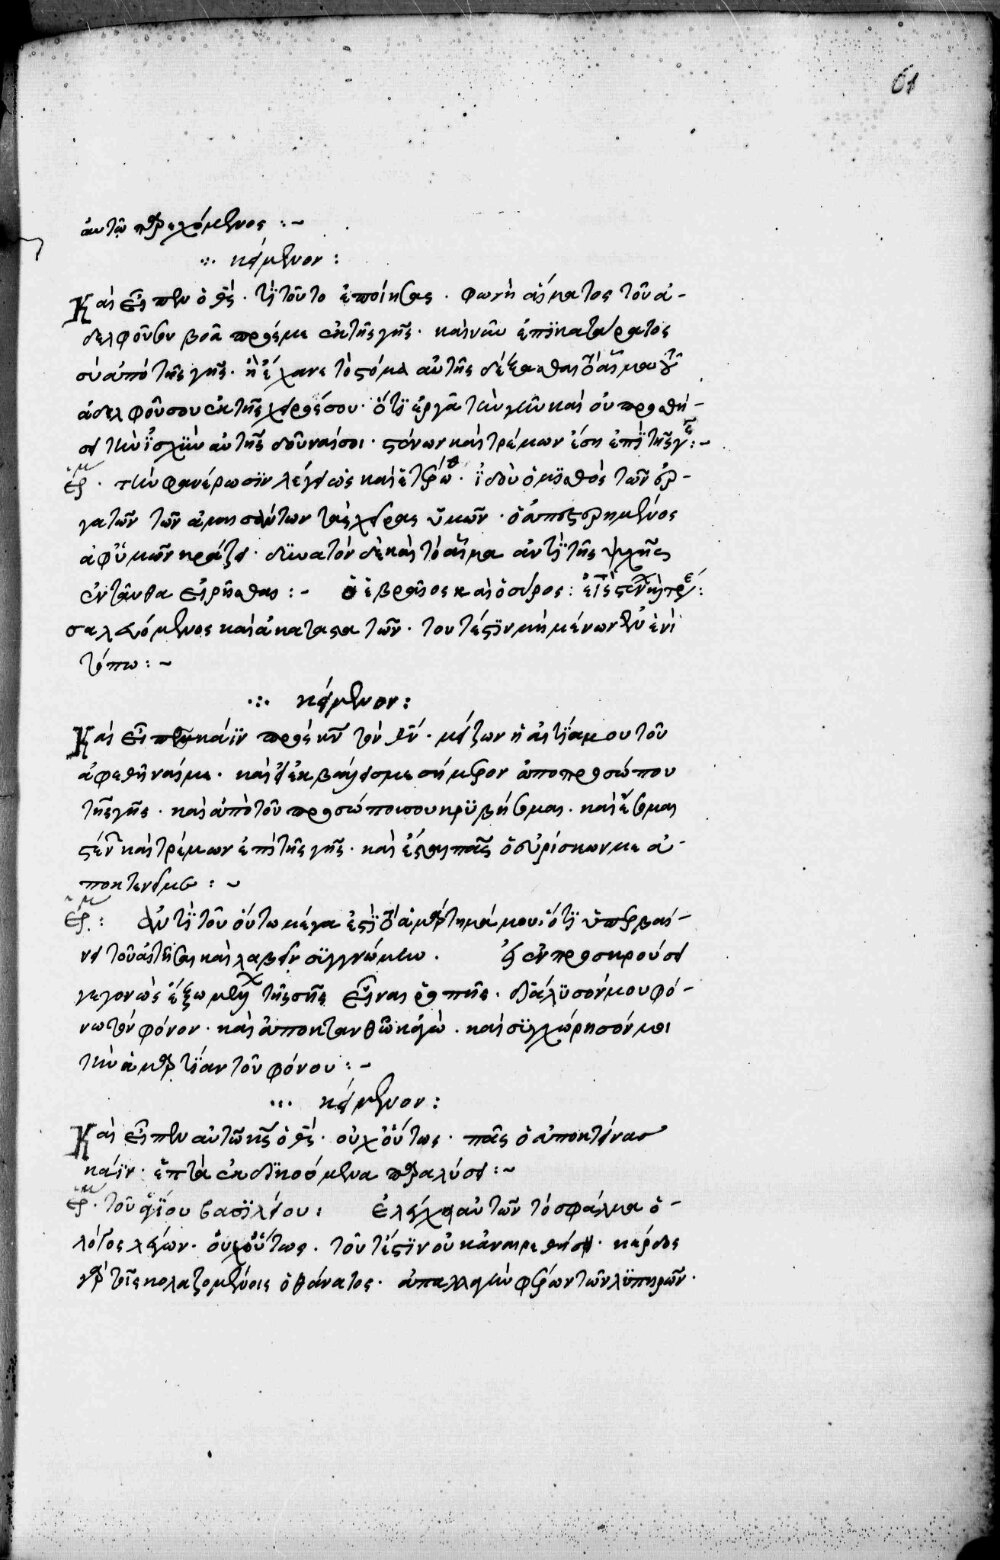 61
αὐτῶ παρεχόμενος :~
∴ κείμενον :
Καὶ εἶπεν ὁ θς̅ · τί τοῦτο ἐποίησας · φωνὴ αἵματος τοῦ ἀ-
δελφοῦ σου βοᾶ πρός με ἐκ τῆς γῆς · καὶ νῦν ἐπϊκατάρατος
σὺ ἀπὸ τῆς γῆς · ἣ ἔχανε τὸ στόμα αὐτῆς δέξασθαι τὸ αἷμα τοῦ
ἀδελφοῦ σου ἐκ τῆς χειρός σου · ὅτϊ ἐργᾶ τὴν γῆν καὶ οὐ προσθή-
σει τὴν ἰσχὺν αὐτῆς δοῦναί σοι · στένων καὶ τρέμων ἔση ἐπὶ τῆς γῆς :~
ἑρμ · τὴν φανέρωσϊν λέγει ὡς καὶ ἑτέρωθ · ἰδοὺ ὁ μϊσθὸς τῶν ἐρ-
γατῶν τῶν ἀμησάντων τὰς χώρας ὑμῶν · ὁ ἀπεστερημένος
ἀφ' ὑμῶν κράζει · δυνατὸν δὲ καὶ τὸ αἷμα ἀντὶ τῆς ψυχῆς
ἐνταῦθα εἰρῆσθαι :~ ὁ ἑβραῖος καὶ ὁ σύρος :
σαλευόμενος καὶ ἀκαταστατῶν · τουτέστϊν μὴ μένων ἐν ἑνὶ
τόπω :~
∴ κείμενον :
Καὶ εἶπεν κάϊν πρὸς κν̅ τὸν θν̅ · μείζων ἡ αἰτία μου τοῦ
ἀφεθῆναί με · καὶ εἰ ἐκβάλεις με σήμερον ἀπὸ προσώπου
τῆς γῆς · καὶ ἀπὸ τοῦ προσώπου σου κρϋβήσομαι · καὶ ἔσομαι
στένων καὶ τρέμων ἐπὶ τῆς γῆς · καὶ ἔσται πᾶς ὁ εὑρίσκων με ἀ-
ποκτενεῖ με :~
ἑρμ : ἀντὶ τοῦ οὕτω μέγα ἐστὶ τὸ ἁμάρτημά μου · ὅτϊ ὑπερβαί-
νει τοῦ αἰτῆσαι καὶ λαβεῖν συγγνώμην · προσκρούσει
γεγονὼς ἔξω τῆς σῆς εἶναι ῥοπῆς · διάλϋσόν μου φό-
νω τὸν φόνον · καὶ ἀποκτανθῶ κἀγὼ · καὶ συγχώρησόν μοι
τὴν ἁμαρτίαν τοῦ φόνου :~
∴ κείμενον :
Καὶ εἶπεν αὐτῶ κς̅ ὁ θς̅ · οὐχ οὕτως · πᾶς ὁ ἀποκτείνας
κάϊν · ἑπτὰ ἐκδϊκούμενα παραλύσει :~
ἑρμ · τοῦ ἁγίου βασϊλείου : ἐλέγχει αὐτῶν τὸ σφάλμα ὁ
λόγος λέγων · οὐχ οὕτως · τοῦτέστϊν οὐκ ἀναιρεθήση · κέρδος
γὰρ τοῖς κολαζομένοις ὁ θάνατος · ἀπαλλαγὴν φέρων τῶν λϋπηρῶν ·